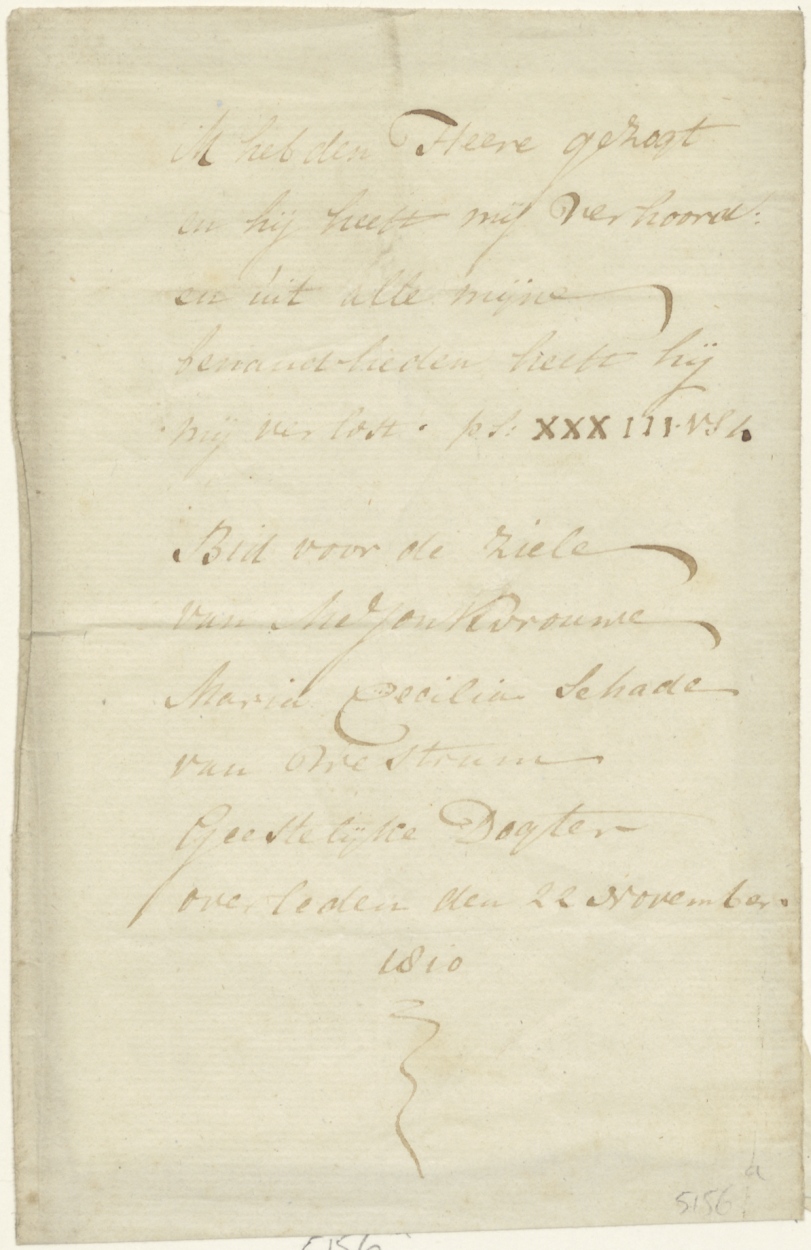 ik heb den Heere gezogt
en hij heeft mij verhoord:
en uit alle mijne
benaudtheden heeft hij
mij verlost. ps: XXXIII. vs 4.
Bid voor de Ziele
van Me Jonkvrouwe
Maria Cecilia Schade
van Westrum
Geestelijke Dogter
overleden den 22 November.
1810
a
5156
5156